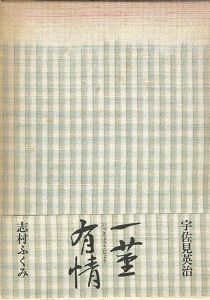 宇佐見英治
一莖
有情
志村ふくみ